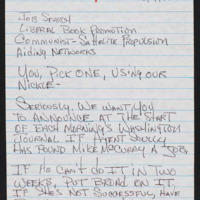 JOB SEARCH
LIBERAL BOOK PROMOTION
COMMUNIST-SATELLITE PROPULSION
AIDING NETWORKS
YOU, PICK ONE, USING OUR
NICKLE-
SERIOUSLY, WE WANT YOU
TO ANNOUNCE AT THE START
OF EACH MORNING'S WASHINGTON
JOURNAL IF AGENT SCULLY
HAS FOUND MIKE MCCURRY A JOB,
IF HE CAN'T DO IT IN TWO
WEEKS, PUT BRIAN ON IT.
IF SHE'S NOT SUCCESSFUL, HAVE